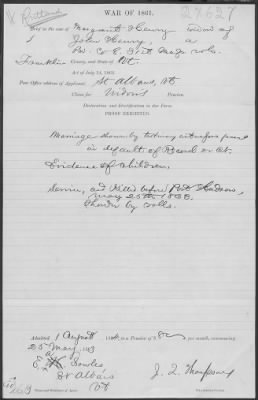 Rutland
WAR OF 1861.
27627
Brief in the case of Margaret Henry widow of
John Henry, a
Co E Vt
Franklin County, and State of Vt.
Act of July 14, 1862.
Post Office address of Applicant, St Albans, Vt
Claim for Widow's Pension.
Declaration and Identification in due Form.
PROOF EXHIBITED.
Marriage shown by testimony
in default of Record
Evidence of children,
Service, and Killed before Port Hudson,
May 25th 1863,
Shown by rolls.
Admitted 1 August 186 to a Pension of $ 8 per month, commencing
25 May, 63
Sowles
St Albans
Vt
J. L. Thompson